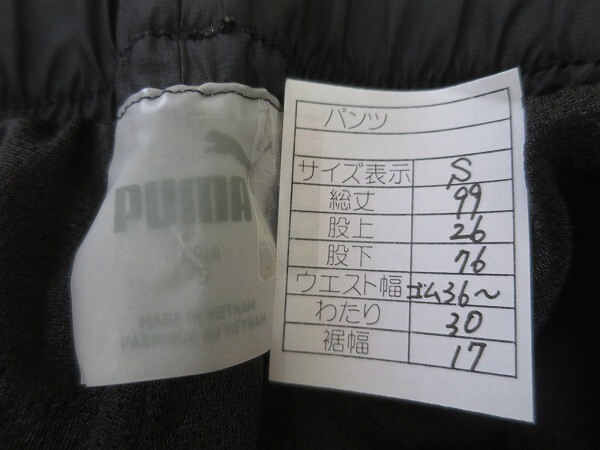 PUMA
MADE IN VIETNAM
パンツ
サイズ表示 S
総丈 99
股上 26
股下 76
ウエスト幅 ゴム36～
わたり 30
裾幅 17